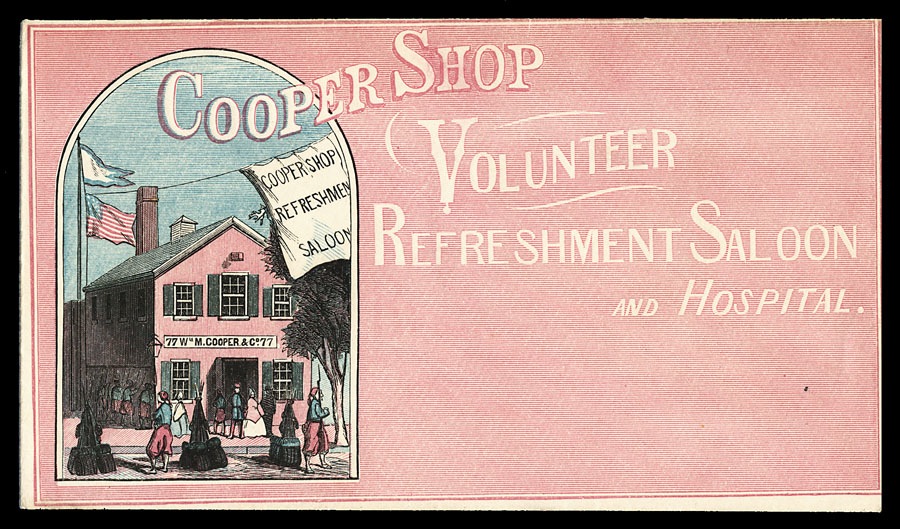 COOPER SHOP
VOLUNTEER
REFRESHMENT SALOON
AND HOSPITAL.
COOPER SHOP
REFRESHMEN
SALOON
77 Wm M. COOPER & Co. 77